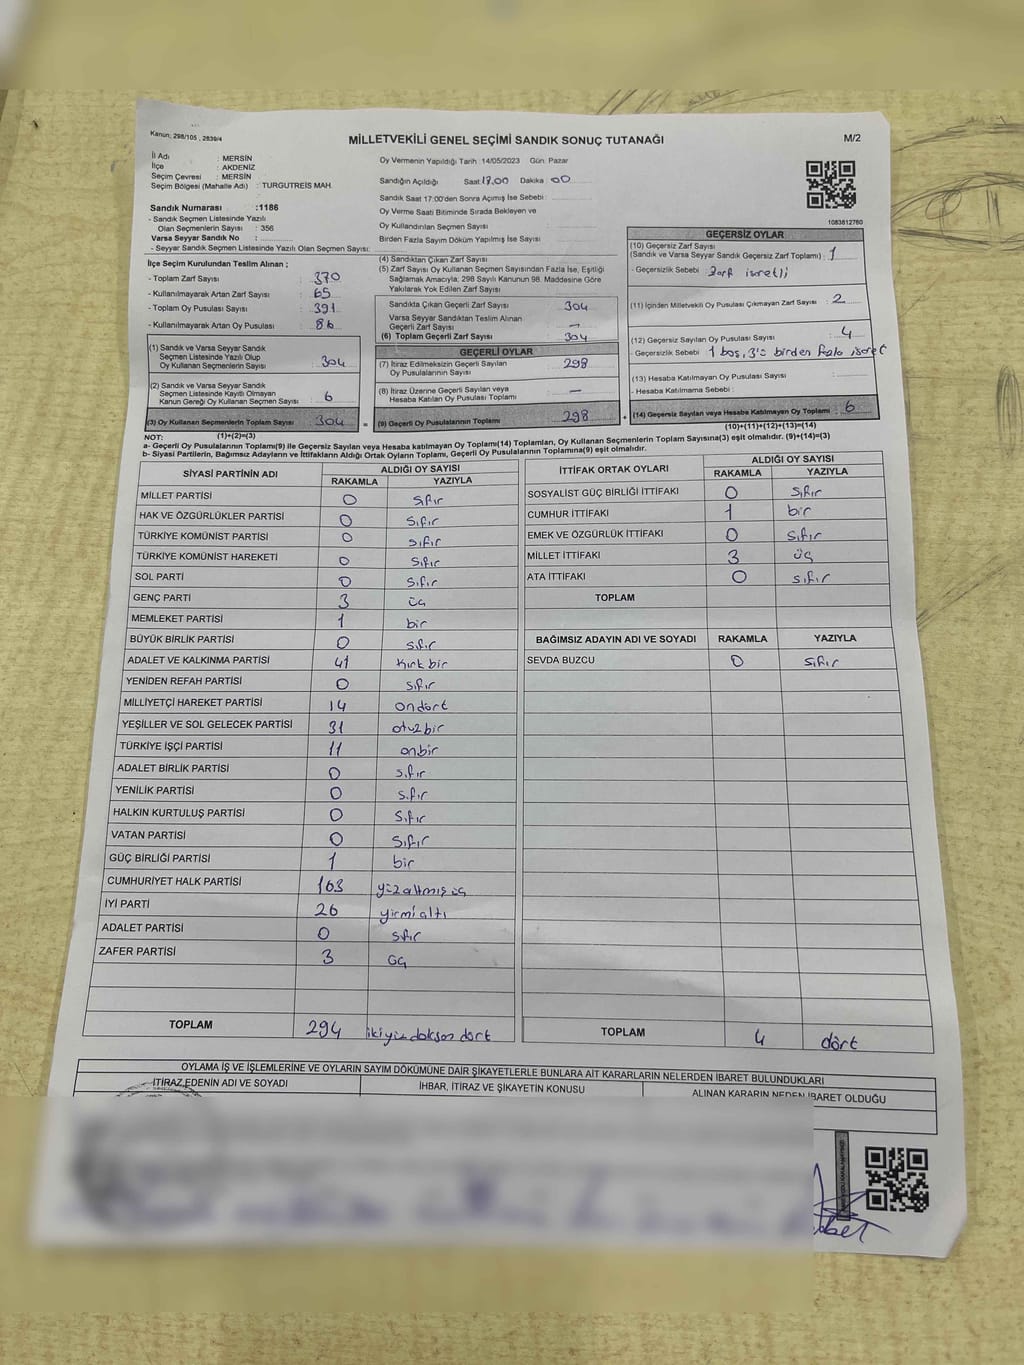 Kanun: 298/105 , 2839/4
MİLLETVEKİLİ GENEL SEÇİMİ SANDIK SONUÇ TUTANAĞI
M/2
İl Adı : MERSİN
İlçe : AKDENİZ
Seçim Çevresi : MERSİN
Seçim Bölgesi (Mahalle Adı) : TURGUTREİS MAH.
Sandık Numarası :1186
- Sandık Seçmen Listesinde Yazılı
Olan Seçmenlerin Sayısı : 356
Varsa Seyyar Sandık No :
- Seyyar Sandık Seçmen Listesinde Yazılı Olan Seçmen Sayısı:
Oy Vermenin Yapıldığı Tarih :14/05/2023 Gün: Pazar
Sandığın Açıldığı Saat 17.00 Dakika 00
Sandık Saat 17:00'den Sonra Açılmış İse Sebebi :
Oy Verme Saati Bitiminde Sırada Bekleyen ve
Oy Kullandırılan Seçmen Sayısı :
Birden Fazla Sayım Döküm Yapılmış İse Sayısı :
1083812760
İlçe Seçim Kurulundan Teslim Alınan ;
- Toplam Zarf Sayısı : 370
- Kullanılmayarak Artan Zarf Sayısı : 65
- Toplam Oy Pusulası Sayısı : 391
- Kullanılmayarak Artan Oy Pusulası : 86
(1) Sandık ve Varsa Seyyar Sandık
Seçmen Listesinde Yazılı Olup
Oy Kullanan Seçmenlerin Sayısı : 304
(2) Sandık ve Varsa Seyyar Sandık
Seçmen Listesinde Kayıtlı Olmayan
Kanun Gereği Oy Kullanan Seçmen Sayısı : 6
(3) Oy Kullanan Seçmenlerin Toplam Sayısı : 304
(1)+(2)=(3)
(4) Sandıktan Çıkan Zarf Sayısı :
(5) Zarf Sayısı Oy Kullanan Seçmen Sayısından Fazla İse, Eşitliği
Sağlamak Amacıyla; 298 Sayılı Kanunun 98. Maddesine Göre
Yakılarak Yok Edilen Zarf Sayısı :
Sandıkta Çıkan Geçerli Zarf Sayısı : 304
Varsa Seyyar Sandıktan Teslim Alınan
Geçerli Zarf Sayısı : —
(6) Toplam Geçerli Zarf Sayısı : 304
GEÇERLİ OYLAR
(7) İtiraz Edilmeksizin Geçerli Sayılan
Oy Pusulalarının Sayısı : 298
(8) İtiraz Üzerine Geçerli Sayılan veya
Hesaba Katılan Oy Pusulası Toplamı : —
= (9) Geçerli Oy Pusulalarının Toplamı : 298
GEÇERSİZ OYLAR
(10) Geçersiz Zarf Sayısı
(Sandık ve Varsa Seyyar Sandık Geçersiz Zarf Toplamı) : 1
- Geçersizlik Sebebi : Zarf işaretli
(11) İçinden Milletvekili Oy Pusulası Çıkmayan Zarf Sayısı : 2
(12) Geçersiz Sayılan Oy Pusulası Sayısı : 4
- Geçersizlik Sebebi : 1 boş, 3'ü birden fazla işaret
(13) Hesaba Katılmayan Oy Pusulası Sayısı :
- Hesaba Katılmama Sebebi :
+ (14) Geçersiz Sayılan veya Hesaba Katılmayan Oy Toplamı : 6
(10)+(11)+(12)+(13)=(14)
NOT:
a- Geçerli Oy Pusulaları Toplamı(9) ile Geçersiz Sayılan veya Hesaba katılmayan Oy Toplamı(14) Toplamları, Oy Kullanan Seçmenlerin Toplam Sayısına(3) eşit olmalıdır. (9)+(14)=(3)
b- Siyasi Partilerin, Bağımsız Adayların ve İttifakların Aldığı Ortak Oyların Toplamı, Geçerli Oy Pusulalarının Toplamına(9) eşit olmalıdır.
SİYASİ PARTİNİN ADI ALDIĞI OY SAYISI
RAKAMLA YAZIYLA
MİLLET PARTİSİ 0 sıfır
HAK VE ÖZGÜRLÜKLER PARTİSİ 0 sıfır
TÜRKİYE KOMÜNİST PARTİSİ 0 sıfır
TÜRKİYE KOMÜNİST HAREKETİ 0 sıfır
SOL PARTİ 0 sıfır
GENÇ PARTİ 3 üç
MEMLEKET PARTİSİ 1 bir
BÜYÜK BİRLİK PARTİSİ 0 sıfır
ADALET VE KALKINMA PARTİSİ 41 Kırk bir
YENİDEN REFAH PARTİSİ 0 sıfır
MİLLİYETÇİ HAREKET PARTİSİ 14 ondört
YEŞİLLER VE SOL GELECEK PARTİSİ 31 otuzbir
TÜRKİYE İŞÇİ PARTİSİ 11 onbir
ADALET BİRLİK PARTİSİ 0 sıfır
YENİLİK PARTİSİ 0 sıfır
HALKIN KURTULUŞ PARTİSİ 0 sıfır
VATAN PARTİSİ 0 sıfır
GÜÇ BİRLİĞİ PARTİSİ 1 bir
CUMHURİYET HALK PARTİSİ 163 yüzaltmışüç
İYİ PARTİ 26 yirmialtı
ADALET PARTİSİ 0 sıfır
ZAFER PARTİSİ 3 üç
TOPLAM 294 ikiyüzdoksan dört
İTTİFAK ORTAK OYLARI ALDIĞI OY SAYISI
RAKAMLA YAZIYLA
SOSYALİST GÜÇ BİRLİĞİ İTTİFAKI 0 sıfır
CUMHUR İTTİFAKI 1 bir
EMEK VE ÖZGÜRLÜK İTTİFAKI 0 sıfır
MİLLET İTTİFAKI 3 üç
ATA İTTİFAKI 0 sıfır
TOPLAM
BAĞIMSIZ ADAYIN ADI VE SOYADI RAKAMLA YAZIYLA
SEVDA BUZCU 0 sıfır
TOPLAM 4 dört
OYLAMA İŞ VE İŞLEMLERİNE VE OYLARIN SAYIM DÖKÜMÜNE DAİR ŞİKAYETLERLE BUNLARA AİT KARARLARIN NELERDEN İBARET BULUNDUKLARI
İTİRAZ EDENİN ADI VE SOYADI İHBAR, İTİRAZ VE ŞİKAYETİN KONUSU ALINAN KARARIN NEDEN İBARET OLDUĞU